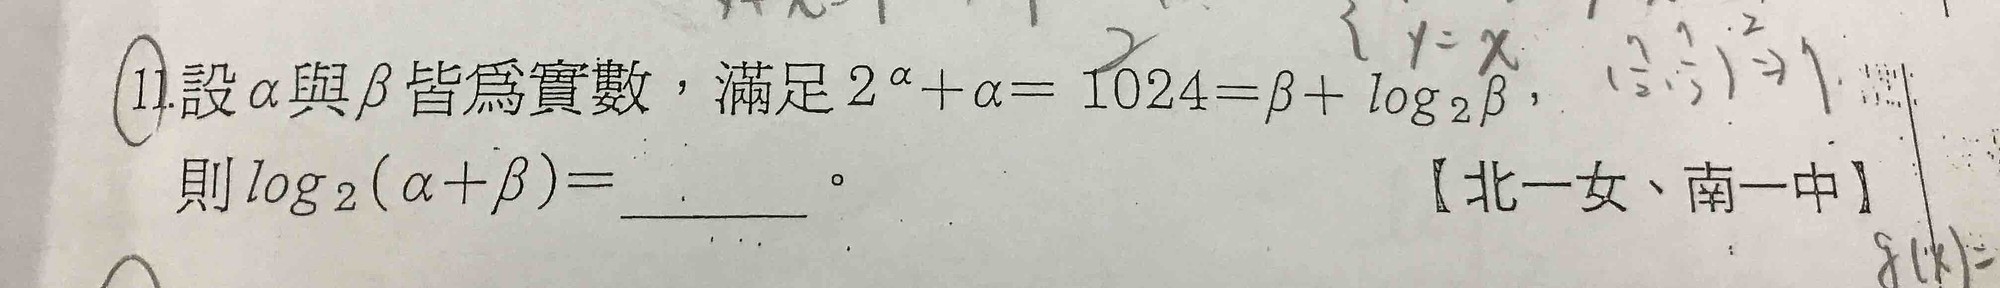 { y = x
11.設α與β皆爲實數，滿足2^α+α= 1024=β+ log₂β，
則log₂(α+β)=______。 【北一女、南一中】
g(x)=